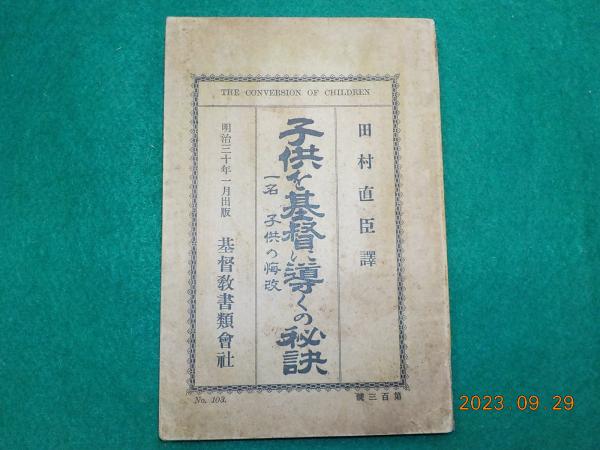 THE CONVERSION OF CHILDREN
田村直臣譯
子供を基督に導くの秘訣
一名 子供の悔改
明治三十年一月出版
基督敎書類會社
第百三號
No. 103.
2023.09.29